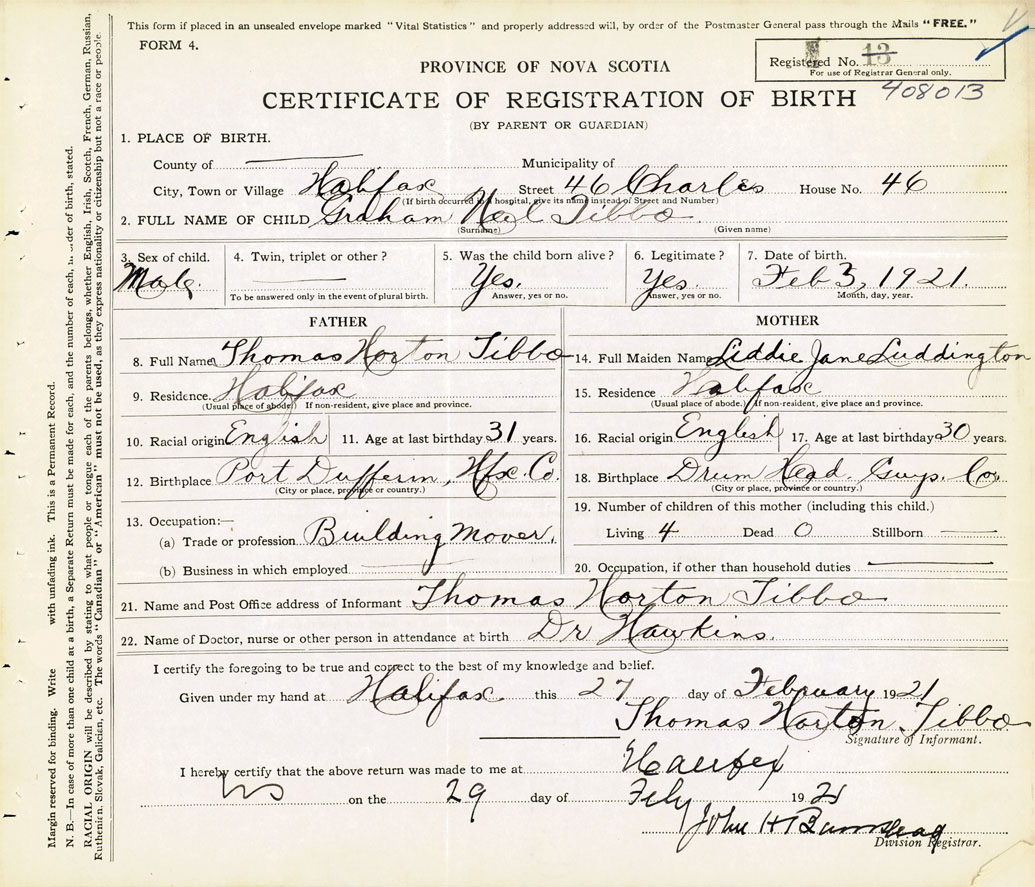 This form if placed in an unsealed envelope marked "Vital Statistics" and properly addressed will, by order of the Postmaster General pass through the Mails "FREE."
FORM 4.
Registered No. 13
For use of Registrar General only.
408013
PROVINCE OF NOVA SCOTIA
CERTIFICATE OF REGISTRATION OF BIRTH
(BY PARENT OR GUARDIAN)
1. PLACE OF BIRTH.
County of Municipality of
City, Town or Village Halifax Street 46 Charles House No. 46
(If birth occurred in a hospital, give its name instead of Street and Number)
2. FULL NAME OF CHILD Graham Neil Tibbo
(Surname) (Given name)
3. Sex of child. 4. Twin, triplet or other ? 5. Was the child born alive ? 6. Legitimate ? 7. Date of birth.
Male. Yes. Yes. Feb 3, 1921.
To be answered only in the event of plural birth. Answer, yes or no. Answer, yes or no. Month, day, year.
FATHER MOTHER
8. Full Name Thomas Horton Tibbo 14. Full Maiden Name Liddie Jane Luddington
9. Residence. Halifax 15. Residence Halifax
(Usual place of abode.) If non-resident, give place and province. (Usual place of abode.) If non-resident, give place and province.
10. Racial origin English 11. Age at last birthday 31 years. 16. Racial origin English 17. Age at last birthday 30 years.
12. Birthplace Port Dufferin, Hfx. Co. 18. Birthplace Drum Head. Guys. Co.
(City or place, province or country.) (City or place, province or country.)
13. Occupation:— 19. Number of children of this mother (including this child.)
(a) Trade or profession Building Mover. Living 4 Dead 0 Stillborn
(b) Business in which employed 20. Occupation, if other than household duties
21. Name and Post Office address of Informant Thomas Horton Tibbo
22. Name of Doctor, nurse or other person in attendance at birth Dr Hawkins.
I certify the foregoing to be true and correct to the best of my knowledge and belief.
Given under my hand at Halifax this 27 day of February 1921
Thomas Horton Tibbo
Signature of Informant.
I hereby certify that the above return was made to me at Halifax
on the 29 day of Feby 1921
John H
Division Registrar.
Margin reserved for binding. Write with unfading ink. This is a Permanent Record.
N. B.—In case of more than one child at a birth, a Separate Return must be made for each, and the number of each, in order of birth, stated.
RACIAL ORIGIN will be described by stating to what people or tongue each of the parents belongs, whether English, Irish, Scotch, French, German, Russian,
Ruthenian, Slovak, Galician, etc. The words "Canadian" or "American" must not be used, as they express nationality or citizenship but not a race or people.